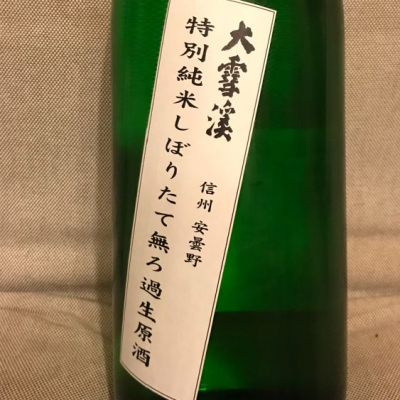 大雪渓
信州 安曇野
特別純米しぼりたて無ろ過生原酒